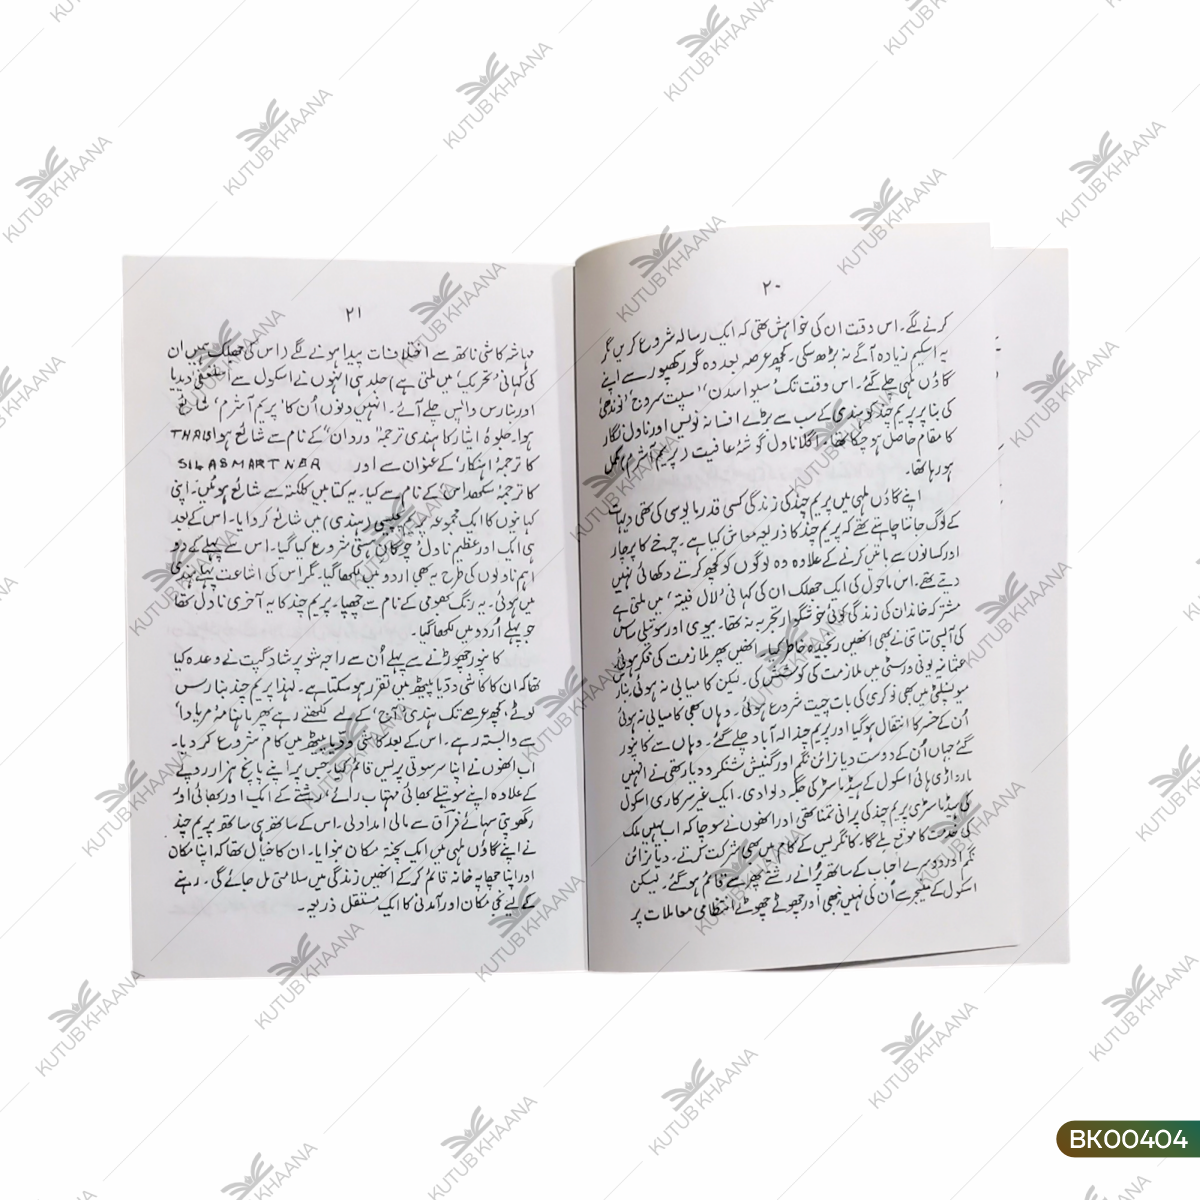 ۲۰
کرنے لگے۔ اس وقت ان کی خواہش تھی کہ ایک رسالہ شروع کریں مگر
یہ اسکیم زیادہ آگے نہ بڑھ سکی۔ کچھ عرصہ بعد وہ گورکھپور سے اپنے
گاؤں لمہی چلے گئے۔ اس وقت تک 'سیوا سدن' 'سپت سروج'
کی بنا پر پریم چند کو ہندی کے سب سے بڑے افسانہ نویس اور ناول نگار
کا مقام حاصل ہو چکا تھا۔ اگلا ناول گوشۂ عافیت (پریم آشرم) مکمل
ہو رہا تھا۔
اپنے گاؤں لمہی میں پریم چند کی زندگی کسی قدر مایوسی کی تھی دیہات
کے لوگ جاننا چاہتے تھے کہ پریم چند کا ذریعہ معاش کیا ہے۔ چرخے کا پرچار
اور کسانوں سے باتیں کرنے کے علاوہ وہ لوگوں کو کچھ کرتے دکھائی نہیں
دیتے تھے۔ اس ماحول کی ایک جھلک ان کی کہانی 'لال فیتہ' میں ملتی ہے
مشترکہ خاندان کی زندگی کوئی خوشگوار تجربہ نہ تھا۔ بیوی اور سوتیلی ساس
کی آپسی تناتنی نے بھی انھیں رنجیدہ خاطر کیا۔ انھیں پھر ملازمت کی فکر ہوئی
عثمانیہ یونی ورسٹی میں ملازمت کی کوشش کی۔ لیکن کامیابی نہ ہوئی بنارس
میونسپلٹی میں بھی نوکری کی بات چیت شروع ہوئی۔ وہاں بھی کامیابی نہ ہوئی
اُن کے خسر کا انتقال ہو گیا اور پریم چند الہ آباد چلے گئے۔ وہاں سے کانپور
گئے جہاں اُن کے دوست دیا نرائن نگم اور گنیش شنکر ودیارتھی نے انہیں
مارواڑی ہائی اسکول کے ہیڈ ماسٹر کی جگہ دلوا دی۔ ایک غیر سرکاری اسکول
کی ہیڈ ماسٹری پریم چند کی پرانی تمنا تھی اور انھوں نے سوچا کہ اب انہیں ملک
کی خدمت کا موقع ملے گا۔ کانگریس کے کام میں بھی شرکت کرتے۔ دیا نرائن
نگم اور دوسرے احباب کے ساتھ پُرانے رشتے پھر سے قائم ہو گئے۔ لیکن
اسکول کے منیجر سے اُن کی نہیں نبھی اور چھوٹے چھوٹے انتظامی معاملات پر
۲۱
مہاشہ کاشی ناتھ سے اختلافات پیدا ہونے لگے (اس کی جھلک ہمیں ان
کی کہانی 'تحریک' میں ملتی ہے) جلد ہی انہوں نے اسکول سے استعفیٰ دیدیا
اور بنارس واپس چلے آئے۔ انہیں دنوں اُن کا 'پریم آشرم' شائع
ہوا۔ جلوۂ ایثار کا ہندی ترجمہ 'وردان' کے نام سے شائع ہوا THAIS
کا ترجمہ 'اہنکار' کے عنوان سے اور SILASMARTNER
کا ترجمہ سکھداس کے نام سے کیا۔ یہ کتابیں کلکتہ سے شائع ہوئیں۔ اپنی
کہانیوں کا ایک مجموعہ پریم پچیسی (ہندی) میں شائع کر دایا۔ اس کے بعد
ہی ایک اور عظیم ناول 'چوگان ہستی' شروع کیا گیا۔ اس سے پہلے کے دو
اہم ناولوں کی طرح یہ بھی اردو میں لکھا گیا۔ مگر اس کی اشاعت پہلے ہندی
میں ہوئی۔ یہ رنگ بھومی کے نام سے چھپا۔ پریم چند کا یہ آخری ناول تھا
جو پہلے اُردو میں لکھا گیا۔
کانپور چھوڑنے سے پہلے اُن سے راجہ شو پرشاد گپت نے وعدہ کیا
تھا کہ ان کا کاشی ودیا پیٹھ میں تقرر ہو سکتا ہے۔ لہذا پریم چند بنارس
لوٹے، کچھ عرصے تک ہندی 'آج' کے لیے لکھتے رہے پھر ماہنامہ 'مریادا'
سے وابستہ رہے۔ اس کے بعد کاشی ودیا پیٹھ میں کام شروع کر دیا۔
اب انھوں نے اپنا سرسوتی پریس قائم کیا جس پر اپنے پانچ ہزار روپے
کے علاوہ اپنے سوتیلے بھائی مہتاب رائے، رشتے کے ایک اور بھائی اور
رگھوپتی سہائے فراق سے مالی امداد لی۔ اس کے ساتھ ہی ساتھ پریم چند
نے اپنے گاؤں لمہی میں ایک پختہ مکان بنوایا۔ ان کا خیال تھا کہ اپنا مکان
اور اپنا چھاپہ خانہ قائم کر کے انھیں زندگی میں سلامتی مل جائے گی۔ رہنے
کے لیے نجی مکان اور آمدنی کا ایک مستقل ذریعہ۔
KUTUB KHAANA
BK00404